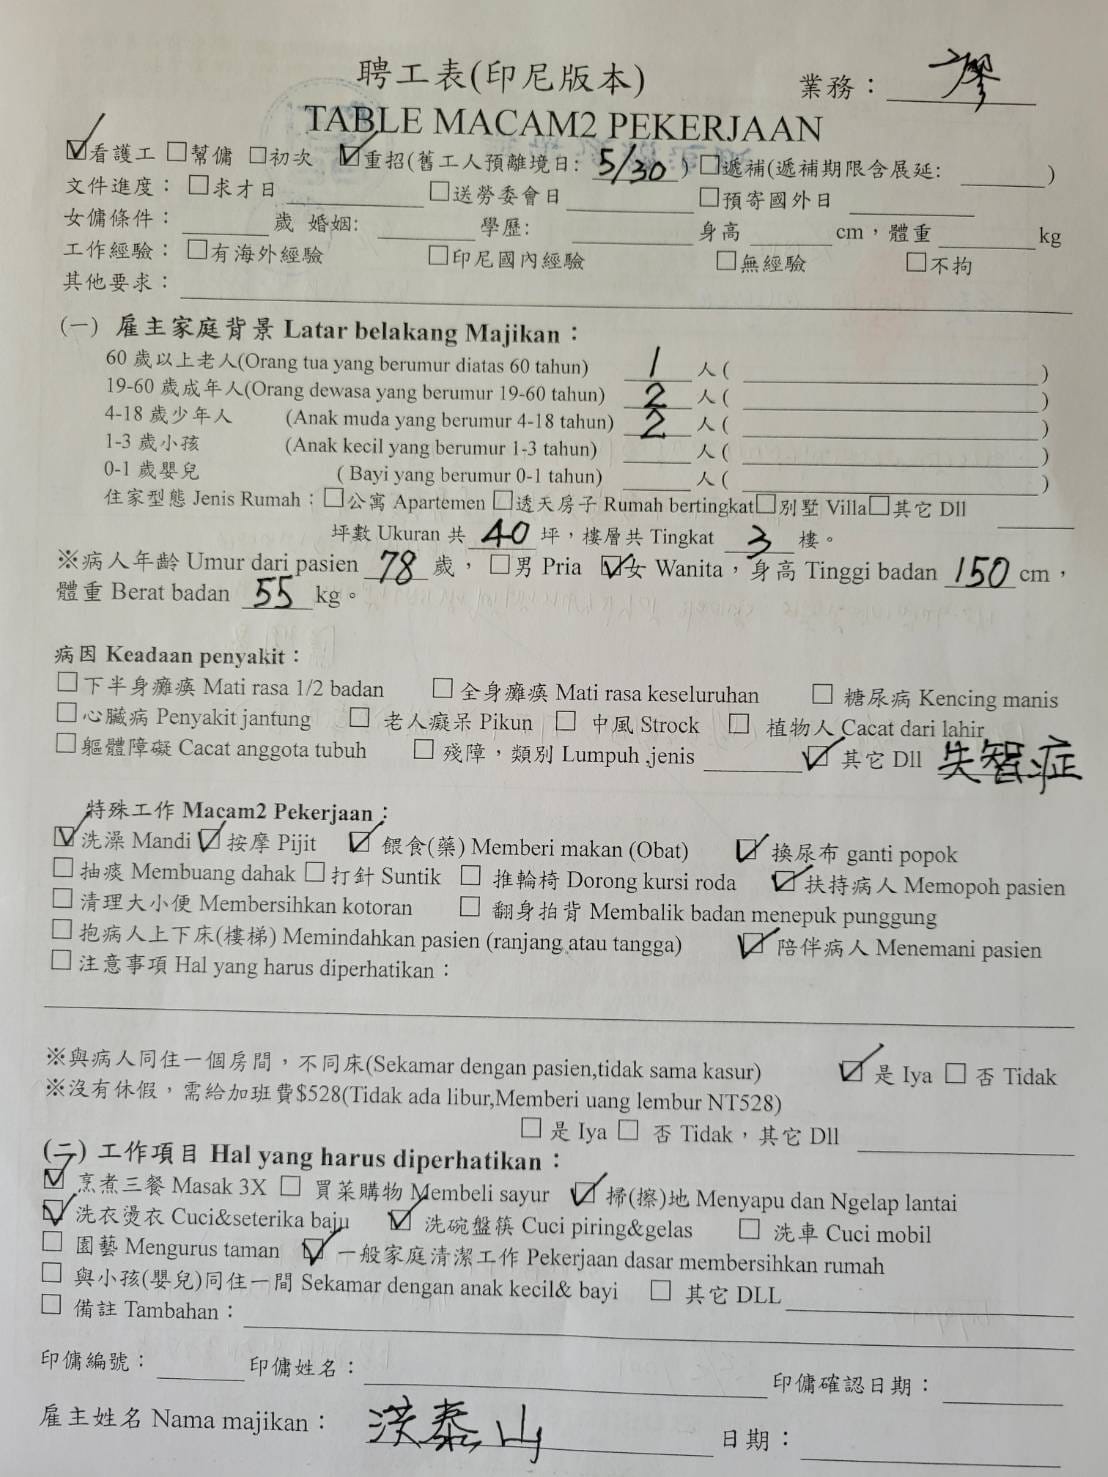 聘工表(印尼版本)
業務：廖
TABLE MACAM2 PEKERJAAN
☑看護工 □幫傭 □初次 ☑重招(舊工人預離境日: 5/30 ) □遞補(遞補期限含展延: ______)
文件進度： □求才日 ______ □送勞委會日 ______ □預寄國外日 ______
女傭條件： ______ 歲 婚姻: ______ 學歷: ______ 身高 ______ cm，體重 ______ kg
工作經驗： □有海外經驗 □印尼國內經驗 □無經驗 □不拘
其他要求： ______
(一) 雇主家庭背景 Latar belakang Majikan：
60 歲以上老人(Orang tua yang berumur diatas 60 tahun) 1 人( ______ )
19-60 歲成年人(Orang dewasa yang berumur 19-60 tahun) 2 人( ______ )
4-18 歲少年人 (Anak muda yang berumur 4-18 tahun) 2 人( ______ )
1-3 歲小孩 (Anak kecil yang berumur 1-3 tahun) ______ 人( ______ )
0-1 歲嬰兒 ( Bayi yang berumur 0-1 tahun) ______ 人( ______ )
住家型態 Jenis Rumah：□公寓 Apartemen □透天房子 Rumah bertingkat□別墅 Villa□其它 Dll ______
坪數 Ukuran 共 40 坪，樓層共 Tingkat 3 樓。
※病人年齡 Umur dari pasien 78 歲，□男 Pria ☑女 Wanita，身高 Tinggi badan 150 cm，
體重 Berat badan 55 kg。
病因 Keadaan penyakit：
□下半身癱瘓 Mati rasa 1/2 badan □全身癱瘓 Mati rasa keseluruhan □ 糖尿病 Kencing manis
□心臟病 Penyakit jantung □ 老人癡呆 Pikun □ 中風 Strock □ 植物人 Cacat dari lahir
□軀體障礙 Cacat anggota tubuh □ 殘障，類別 Lumpuh .jenis ______ ☑ 其它 Dll 失智症
特殊工作 Macam2 Pekerjaan：
☑洗澡 Mandi ☑按摩 Pijit ☑ 餵食(藥) Memberi makan (Obat) ☑ 換尿布 ganti popok
□抽痰 Membuang dahak □打針 Suntik □ 推輪椅 Dorong kursi roda ☑扶持病人 Memopoh pasien
□清理大小便 Membersihkan kotoran □ 翻身拍背 Membalik badan menepuk punggung
□抱病人上下床(樓梯) Memindahkan pasien (ranjang atau tangga) ☑ 陪伴病人 Menemani pasien
□注意事項 Hal yang harus diperhatikan：
※與病人同住一個房間，不同床(Sekamar dengan pasien,tidak sama kasur) ☑ 是 Iya □ 否 Tidak
※沒有休假，需給加班費$528(Tidak ada libur,Memberi uang lembur NT528)
□ 是 Iya □ 否 Tidak，其它 Dll ______
(二) 工作項目 Hal yang harus diperhatikan：
☑ 烹煮三餐 Masak 3X □ 買菜購物 Membeli sayur ☑ 掃(擦)地 Menyapu dan Ngelap lantai
☑ 洗衣燙衣 Cuci&seterika baju ☑ 洗碗盤筷 Cuci piring&gelas □ 洗車 Cuci mobil
□ 園藝 Mengurus taman ☑ 一般家庭清潔工作 Pekerjaan dasar membersihkan rumah
□ 與小孩(嬰兒)同住一間 Sekamar dengan anak kecil& bayi □ 其它 DLL ______
□ 備註 Tambahan： ______
印傭編號： ______ 印傭姓名： ______ 印傭確認日期： ______
雇主姓名 Nama majikan： 洪泰山 日期： ______